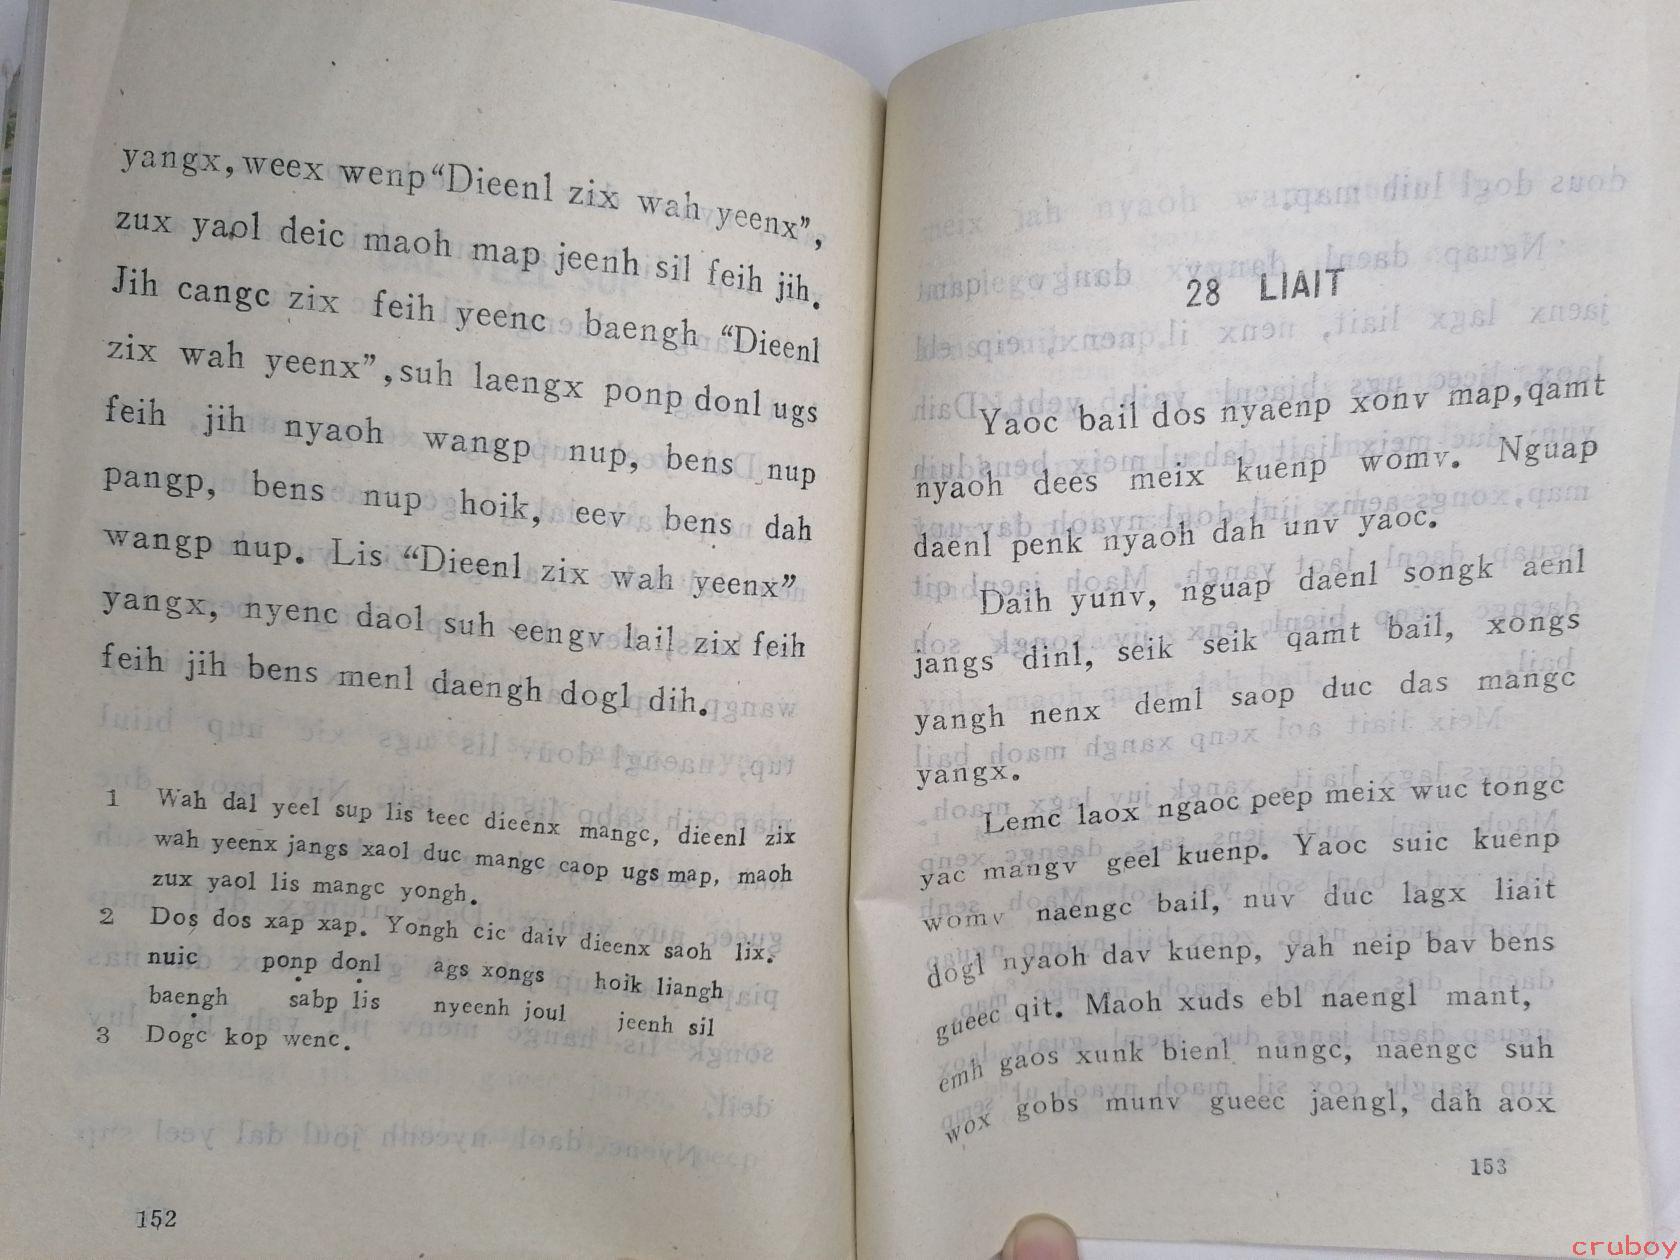 yangx, weex wenp “Dieenl zix wah yeenx”,
zux yaol deic maoh map jeenh sil feih jih.
Jih cangc zix feih yeenc baengh “Dieenl
zix wah yeenx”, suh laengx ponp donl ugs
feih jih nyaoh wangp nup, bens nup
pangp, bens nup hoik, eev bens dah
wangp nup. Lis “Dieenl zix wah yeenx”
yangx, nyenc daol suh eengv lail zix feih
feih jih bens menl daengh dogl dih.
1 Wah dal yeel sup lis teec dieenx mangc, dieenl zix
wah yeenx jangs xaol duc mangc caop ugs map, maoh
zux yaol lis mangc yongh.
2 Dos dos xap xap. Yongh cic daiv dieenx saoh lix.
nuic ponp donl ags xongs hoik liangh
baengh sabp lis nyeenh joul jeenh sil
3 Dogc kop wenc.
152
28 LIAIT
Yaoc bail dos nyaenp xonv map, qamt
nyaoh dees meix kuenp womv. Nguap
daenl penk nyaoh dah unv yaoc.
Daih yunv, nguap daenl songk aenl
jangs dinl, seik seik qamt bail, xongs
yangh nenx deml saop duc das mangc
yangx.
Lemc laox ngaoc peep meix wuc tongc
yac mangv geel kuenp. Yaoc suic kuenp
womv naengc bail, nuv duc lagx liait
dogl nyaoh dav kuenp, yah neip bav bens
gueec qit. Maoh xuds ebl naengl mant,
emh gaos xunk bienl nungc, naengc suh
wox gobs munv gueec jaengl, dah aox
153
cruboy